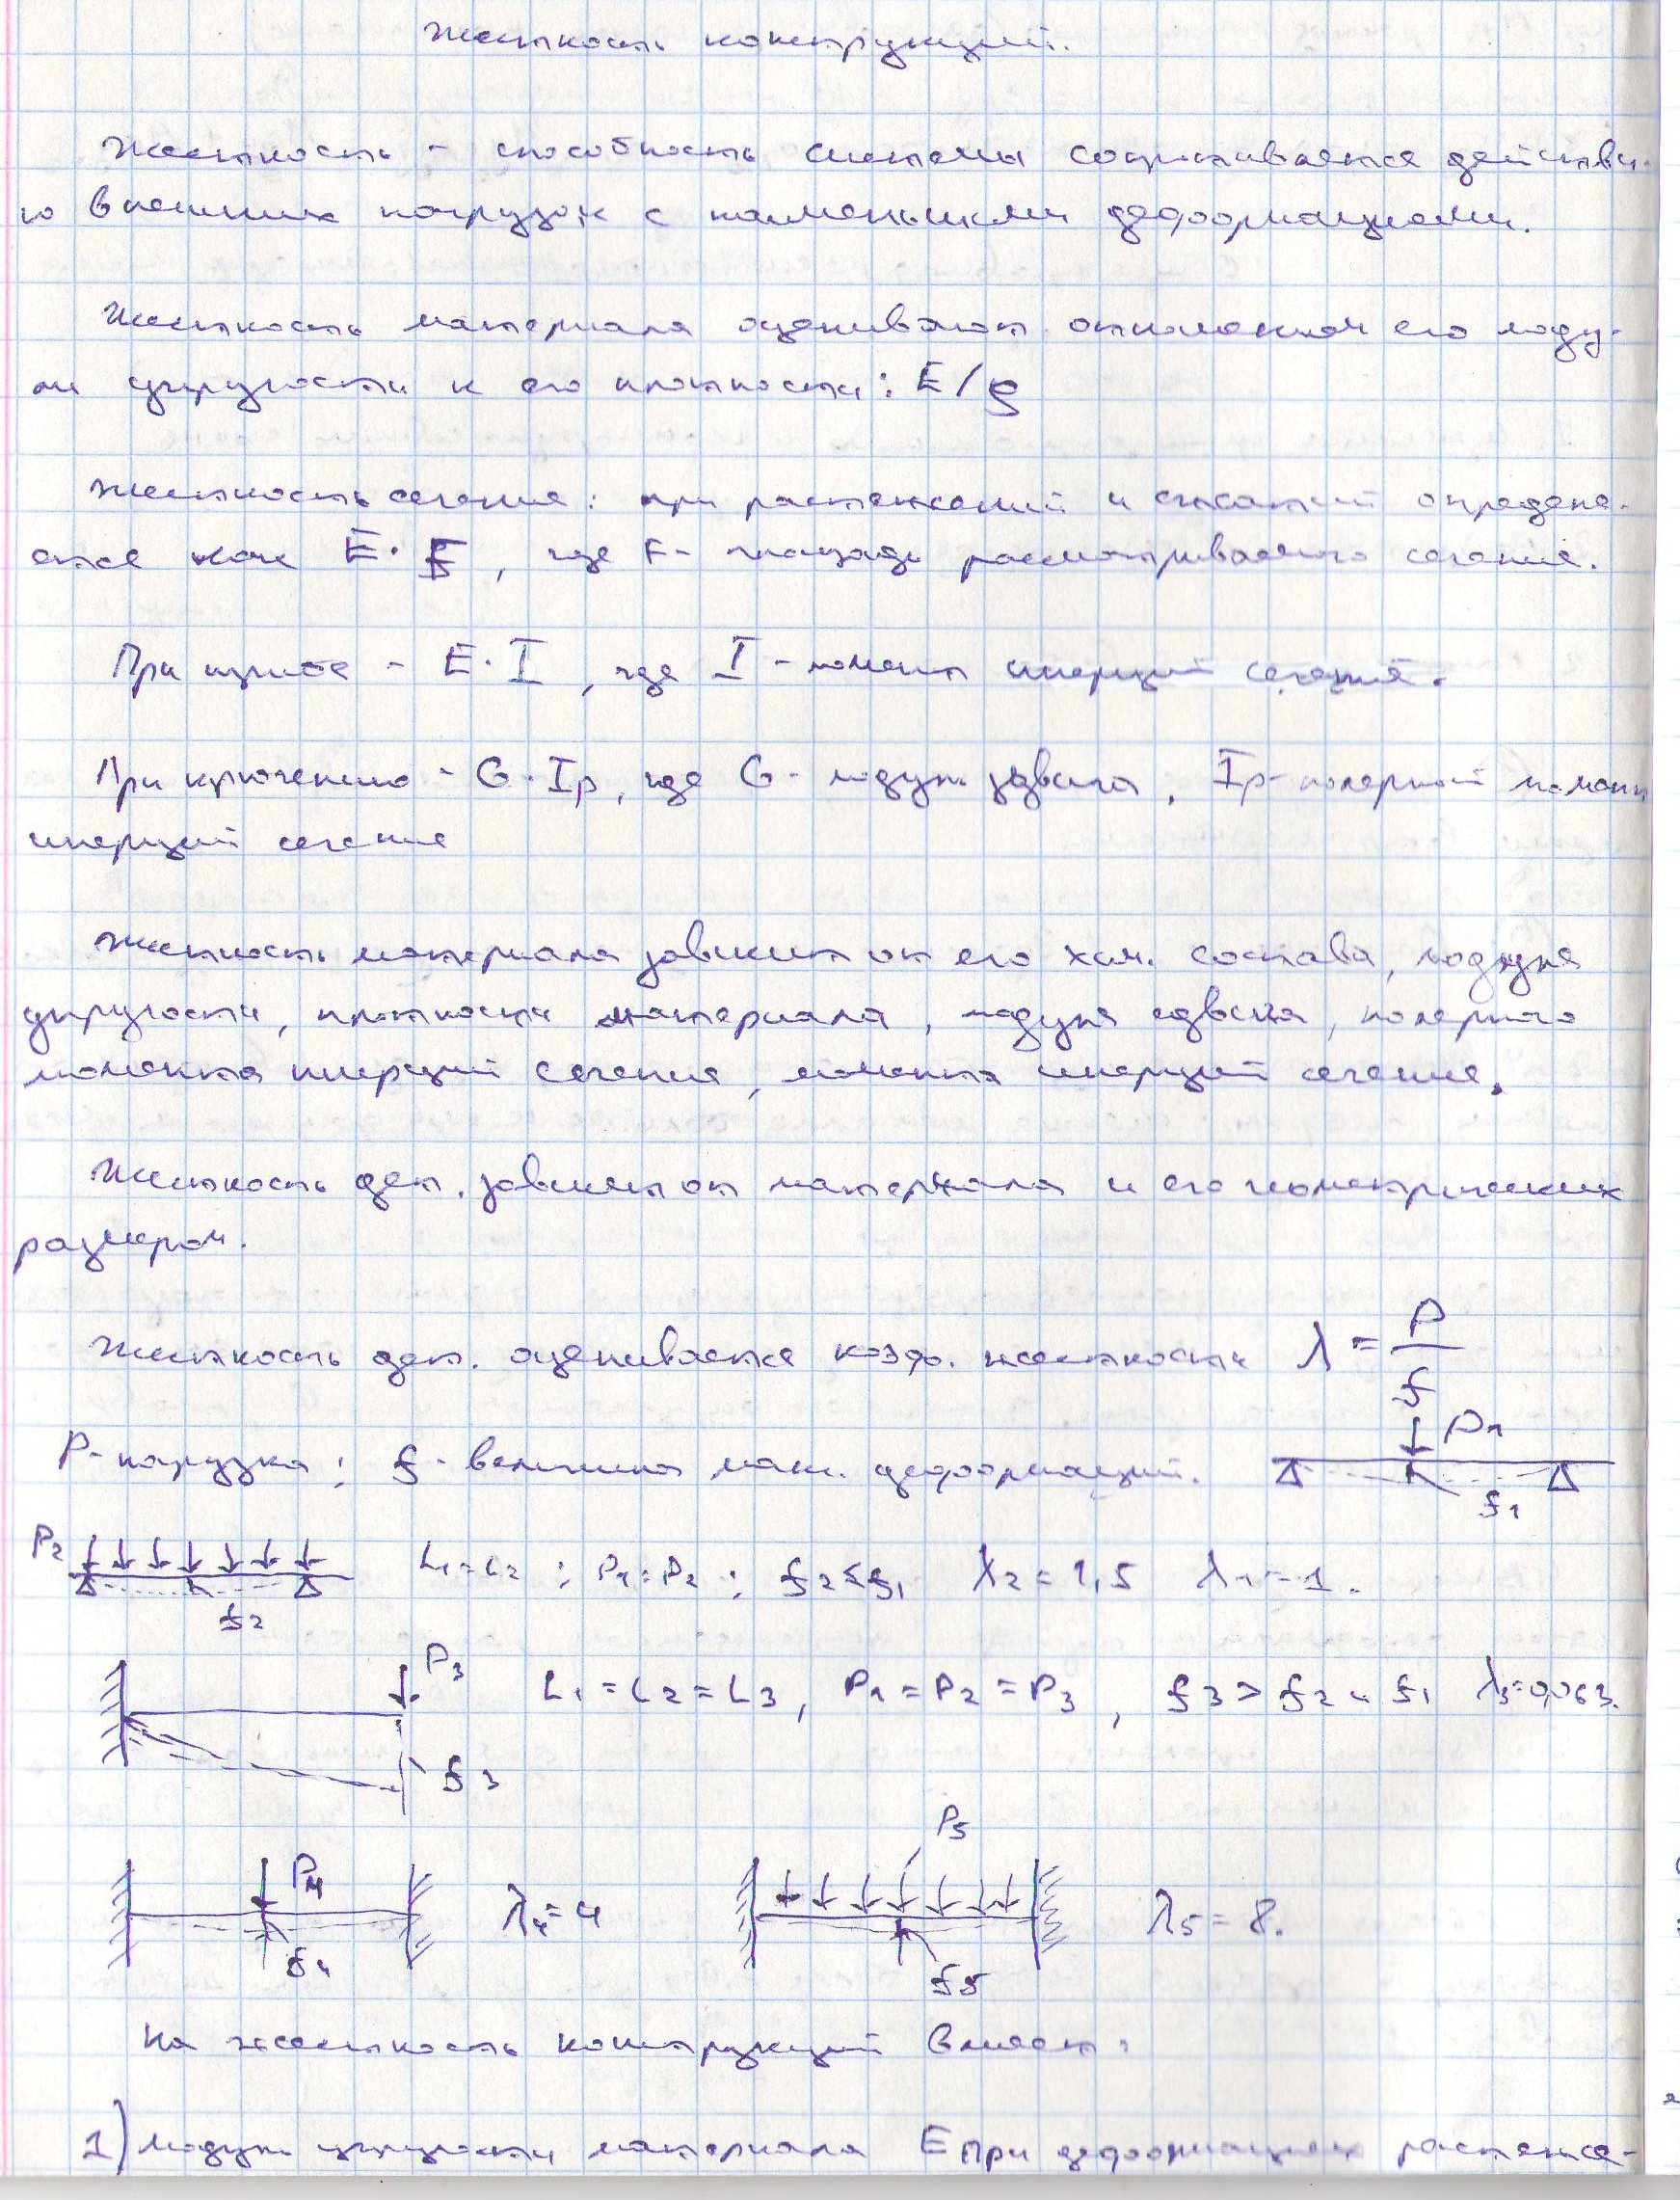 Жесткость конструкций.
Жесткость - способность системы сопротивляется действи-
ю внешних нагрузок с наименьшими деформациями.
Жесткость материала оценивают отношением его моду-
ля упругости к его плотности: E/ρ
Жесткость сечение: при растяжений и сжатий определя-
ется как E·F, где F- площадь рассматриваемого сечения.
При изгибе - E·I, где I - момент инерций сечения.
При кручению - G·Ip, где G - модуль сдвига, Ip- полярной момент
инерций сечение
Жесткость материала зависит от его хим. состава, модуля
упругости, плотности материала, модуля сдвига, полярного
момента инерций сечения, момента инерций сечения.
Жесткость дет. зависит от материала и его геометрических
размером.
Жесткость дет. оценивается коэф. жесткости λ = P/f
P- нагрузка; f - величина мак. деформаций.
P1
f1
P2
f2
L1=L2; P1=P2; f2<f1 λ2=1,5 λ1=1.
P3
f3
L1=L2=L3, P1=P2=P3, f3>f2 и f1 λ3=0,063.
P4
f4
λ4=4
P5
f5
λ5=8.
На жесткость конструкций влияет:
1) Модуль упругости материала E При деформациях растяже-